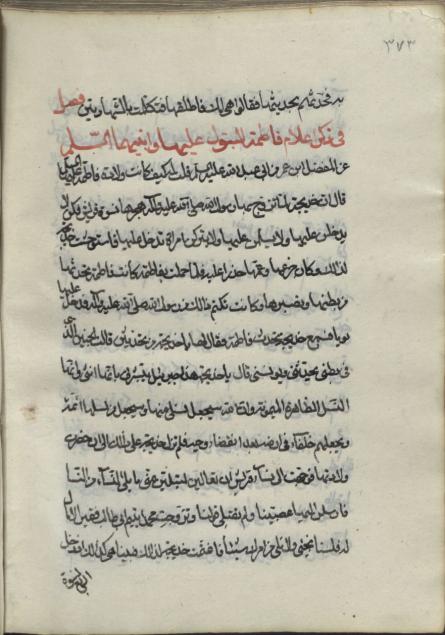 ٣٧٣
فحدثهم بحديثها فقالوا هي لك فاطلقها فتكلمت بالشهادتين فصل
في ذكر اعلام فاطمة البتول عليها وابنيها السلام
عن المفضل ابن عمر قال لابي عبد الله عليه السلم كيف كانت ولادة فاطمة عليها السلم
قال ان خديجة لما تزوج بها رسول الله صلى الله عليه وآله هجرتها نسوة قريش فكن لا
يدخلن عليها ولا يسلمن عليها ولا يتركن امراة تدخل عليها فاستوحشت خديجة
لذلك وكان حزنها وغمها حذرا عليه فلما حملت بفاطمة كانت فاطمة تحدثها
من بطنها وتصبرها وكانت تكتم ذلك من رسول الله صلى الله عليه وآله فدخل عليها
يوما فسمع خديجة تحدث فاطمة فقال لها يا خديجة من تحدثين قالت الجنين الذي
في بطني يحدثني ويونسني قال يا خديجة هذا جبرئيل يبشرني بانها انثى وانها
النسل الطاهرة الميمونة وان الله سيجعل نسلي منها وسيجعل من نسلها ائمة
ويجعلهم خلفاء في ارضه بعد انقضاء وحيه فلم تزل خديجة على ذلك الى ان حضرت
ولادتها فوجهت الى نساء قريش ان تعالين لتلين مني ما يلي النساء من النساء
فارسلن اليها عصيتينا ولم تقبلي قولنا وتزوجت محمدا يتيم ابي طالب فقيرا لا مال
له فلسنا نجئي ولا نلي من امرك شيئا فاغتمت خديجة لذلك فبينا هي كذلك اذ دخل